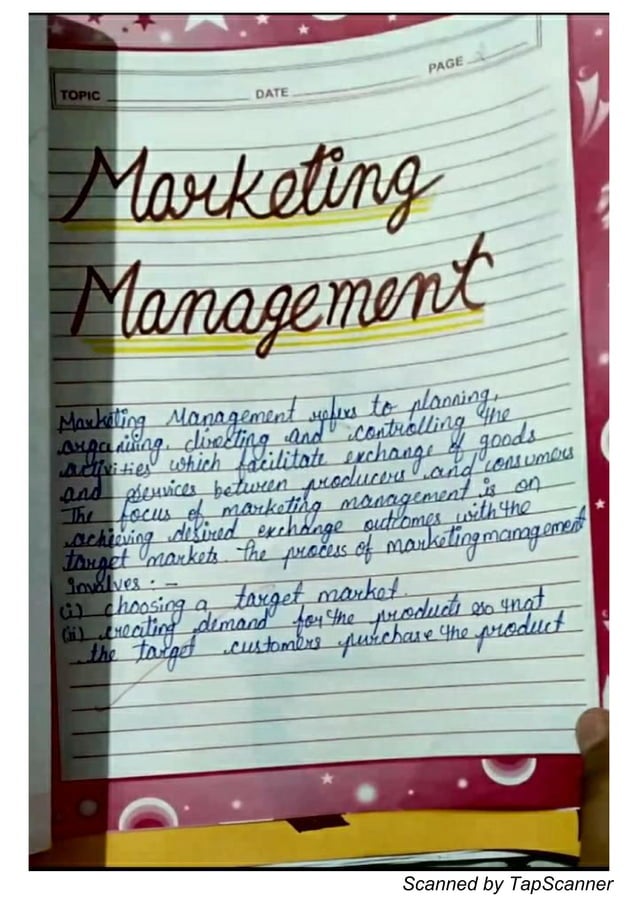 PAGE
TOPIC DATE
Marketing
Management
Marketing Management refers to planning,
organising, directing and controlling the
activities which facilitate exchange of goods
and services between producers and consumers
The focus of marketing management is on
achieving desired exchange outcomes with the
target markets. The process of marketing management
Involves : -
(i) choosing a target market.
(ii) creating demand for the products so that
the target customers purchase the product
Scanned by TapScanner